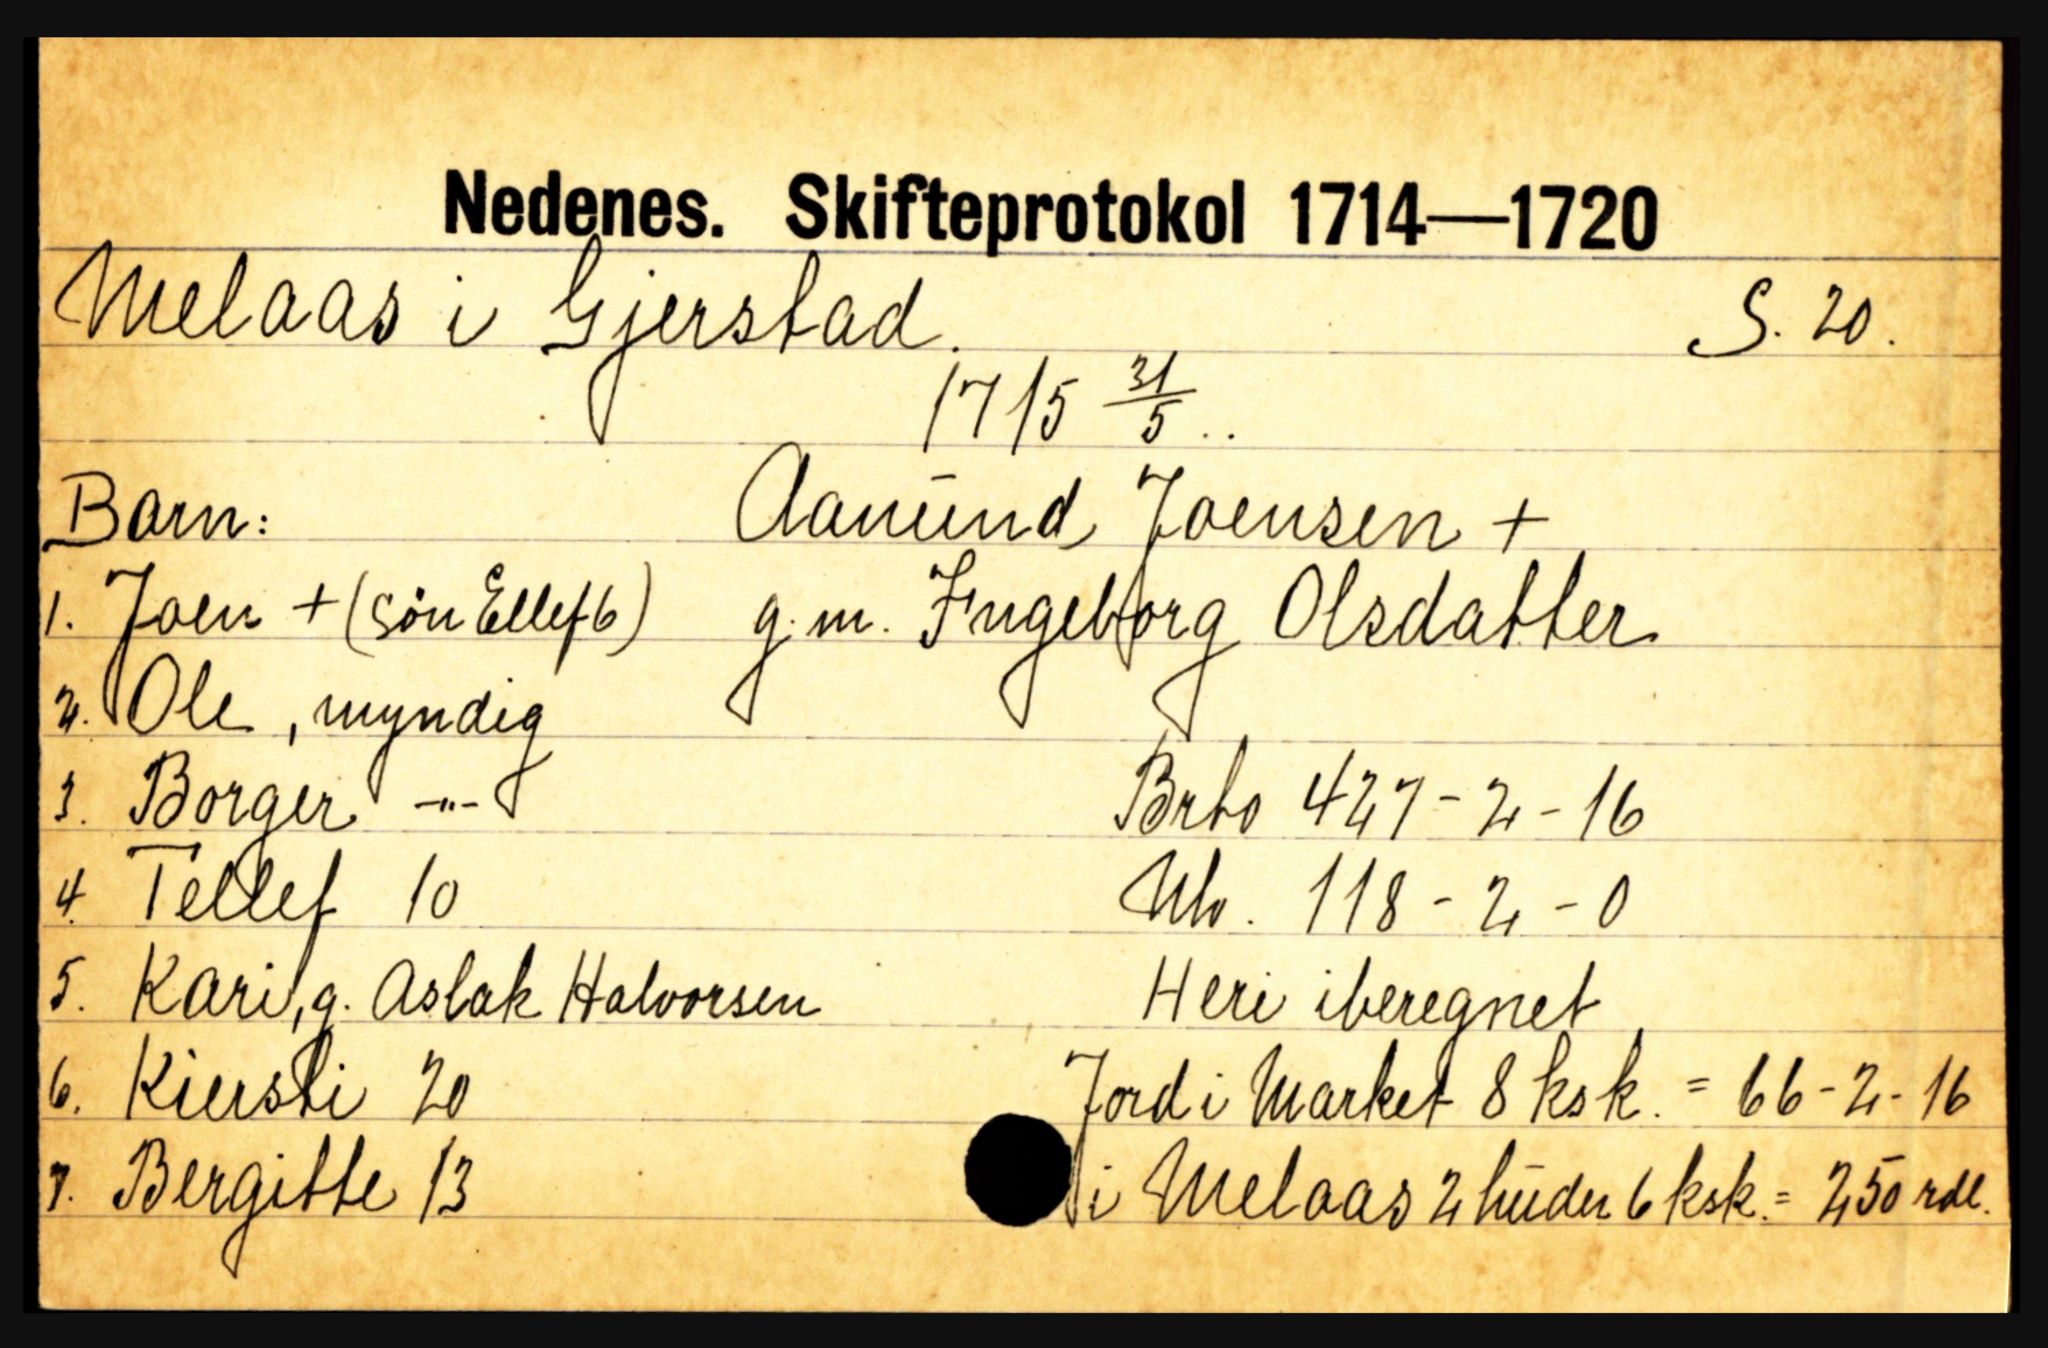 Nedenes. Skifteprotokol 1714—1720
Melaas i Gjerstad. S. 20.
1715 31/5..
Barn: Aanund Joensen +
1. Joen + (sön Ellef 6) g.m. Ingeborg Olsdatter
2. Ole, myndig
3. Borger -"- Brto 427-2-16
4. Tellef 10 Nto. 118-2-0
5. Kari, g. Aslak Halvorsen Heri iberegnet
6. Kiersti 20 Jord i Market 8 ksk. = 66-2-16
7. Bergitte 13 i Melaas 2 huder 6 ksk. = 250 rdl.